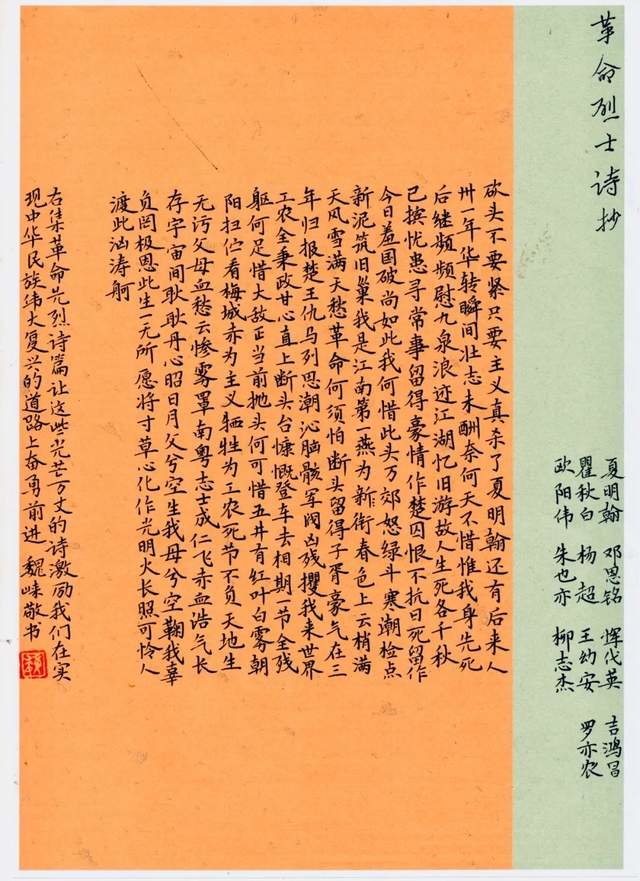 革命烈士诗抄
夏明翰 邓恩铭 恽代英 吉鸿昌
瞿秋白 杨超 王幼安 罗亦农
欧阳伟 朱也赤 柳志杰
砍头不要紧只要主义真杀了夏明翰还有后来人
卅一年华转瞬间壮志未酬奈何天不惜惟我身先死
后继频频慰九泉浪迹江湖忆旧游故人生死各千秋
已摈忧患寻常事留得豪情作楚囚恨不抗日死留作
今日羞国破尚如此我何惜此头万郊怒绿斗寒潮检点
新泥筑旧巢我是江南第一燕为衔春色上云梢满
天风雪满天愁革命何须怕断头留得子胥豪气在三
年归报楚王仇马列思潮沁脑骸军阀凶残攫我来世界
工农全秉政甘心直上断头台慷慨登车去相期一节全残
躯何足惜大敌正当前抛头何可惜五井有红叶白雾朝
阳扫伫看梅城赤为主义牺牲为工农死节不负天地生
无污父母血愁云惨雾罩南粤志士成仁飞赤血浩气长
存宇宙间耿耿丹心昭日月父兮空生我母兮空鞠我辜
负罔极恩此生一无所愿将寸草心化作光明火长照可怜人
渡此汹涛舸
右集革命先烈诗篇让这些光芒万丈的诗激励我们在实
现中华民族伟大复兴的道路上奋勇前进 魏崃敬书